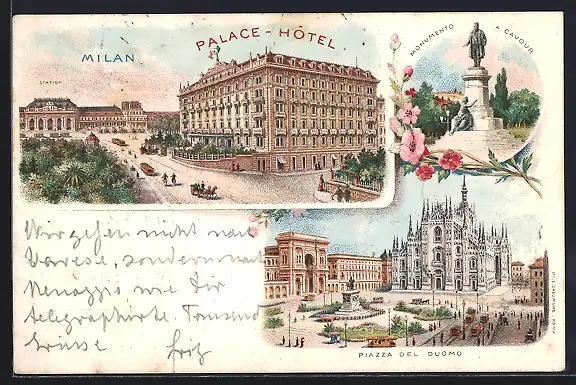 MILAN
PALACE-HÔTEL
STATION
MONUMENTO CAVOUR
Wir gehen nicht nach
Varese, sondern nach
Menaggio wie Dir
telegraphirte. Tausend
Grüsse Fritz
PIAZZA DEL DUOMO